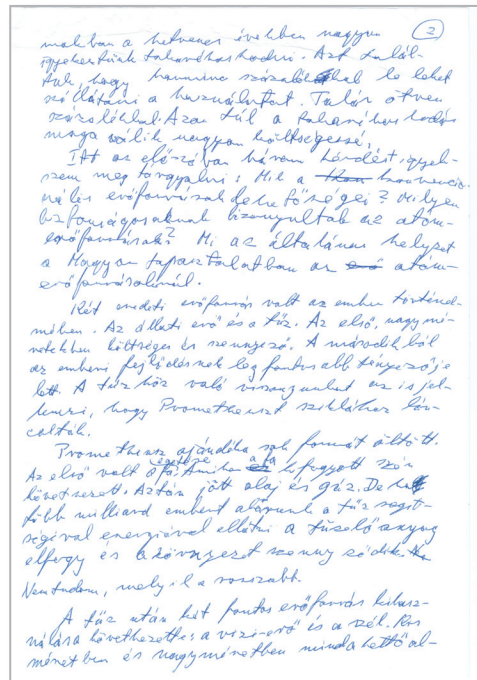 2
makban a hetvenes években nagyon
igyekeztünk takarékoskodni. Azt talál-
tuk, hogy harminc százalékkal le lehet
szállítani a használatot. Talán ötven
százalékkal. Azon túl a takarékoskodás
maga válik nagyon költségessé.
Itt az előszóban három kérdést igyek-
szem megtárgyalni: Mik a konvencio-
nális erőforrások lehetőségei? Milyen
biztonságosaknak bizonyultak az atom-
erőforrások? Mi az általános helyzet
a Magyar tapasztalatban az atom-
erőforrásoknál.
Két eredeti erőforrás volt az ember történel-
mében. Az állati erő és a tűz. Az első, nagy mé-
retekben költséges és szennyező. A másodikból
az emberi fejlődésnek legfontosabb tényezője
lett. A tűzhöz való viszonyunkat az is jel-
lemzi, hogy Prometheuszt sziklához lán-
colták.
Prometheusz ajándéka sok formát öltött.
Az első volt a fa égetése. Amikor a fa kifogyott szén
következett. Aztán jött olaj és gáz. De ha
több milliard embert akarunk a tűz segít-
ségével energiával ellátni a tüzelőanyag
elfogy és a környezet szennyeződik.
Nem tudom, melyik a rosszabb.
A tűz után két fontos erőforrás kihasz-
nálása következett: a vízi-erő és a szél. Kis
méretben és nagyméretben mind a kettő al-